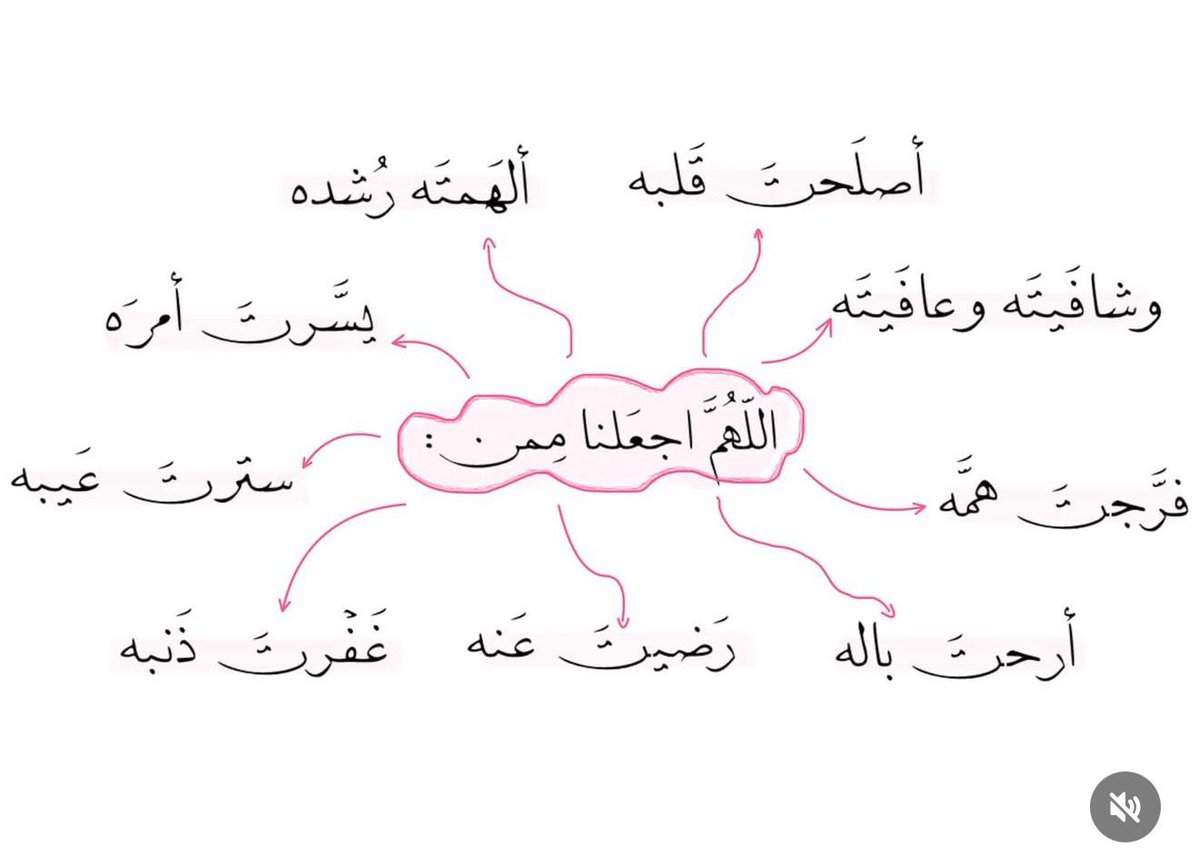 أصلَحتَ قَلبه
ألهَمتَه رُشده
وشافَيتَه وعافَيتَه
يسَّرتَ أمرَه
اللَّهُمَّ اجعَلنا مِمن :
سترتَ عَيبه
فرَّجتَ همَّه
أرحتَ باله
رَضيتَ عَنه
غَفْرتَ ذَنبه